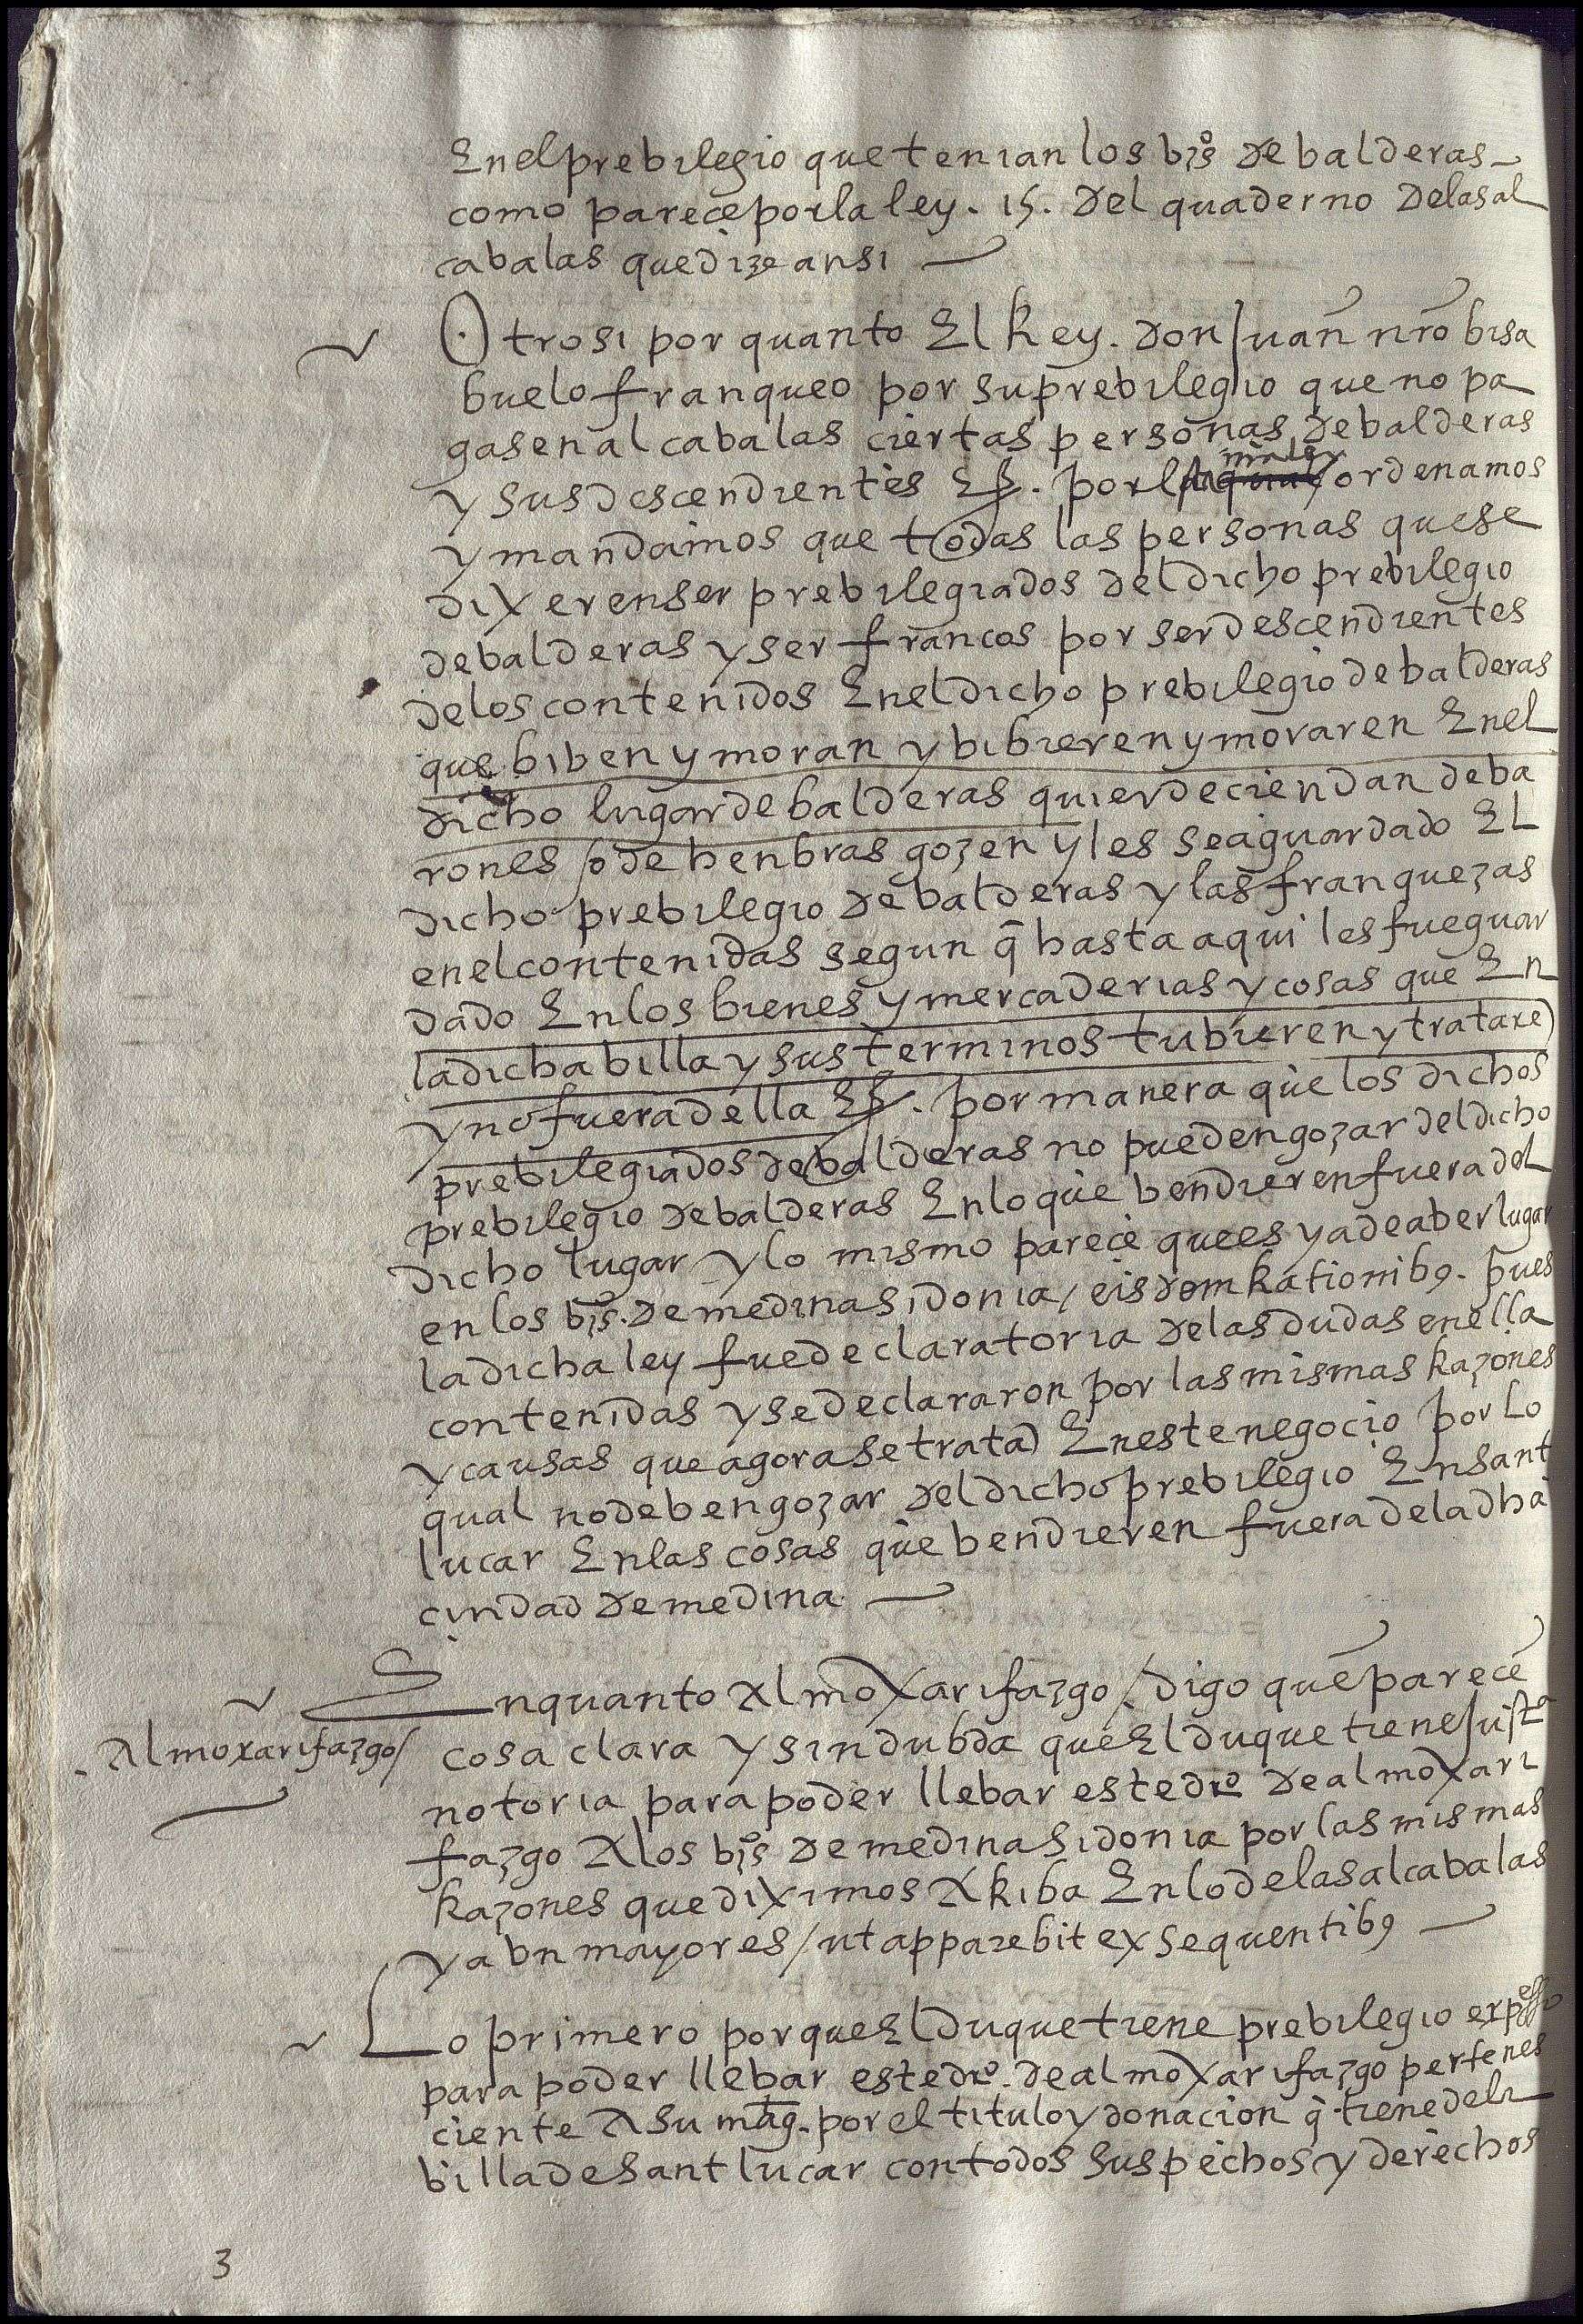 En el prebilegio que tenian los bzºs de balderas
como parece por la ley. 15. del quaderno delas al
cabalas que dize ansi
Otrosi por quanto El Rey. don Juan nro bisa
buelo franqueo por su prebilegio que no pa
gasen alcabalas ciertas personas de balderas
y sus descendientes Es. por la ordenamos
y mandamos que todas las personas que se
dixeren ser prebilegiados del dicho prebilegio
de balderas y ser francos por ser descendientes
delos contenidos En el dicho prebilegio de balderas
que biben y moran y bibieren y moraren En el
dicho lugar de balderas quier deciendan de ba
rones / o de henbras gozen y les sea guardado El
dicho prebilegio de balderas y las franquezas
en el contenidas segun q̃ hasta aqui les fue guar
dado En los bienes y mercaderias y cosas que En
la dicha billa y sus terminos tubieren y trataren
y no fuera della Es. por manera que los dichos
prebilegiados de balderas no pueden gozar del dicho
prebilegio de balderas En lo que bendieren fuera del
dicho lugar y lo mismo parece que es y a de aber lugar
en los bzºs. de medina sidonia / eisdem Rationibꝯ. pues
la dicha ley fue declaratoria de las dudas en ella
contenidas y se declararon por las mismas Razones
y causas que agora se tratan En este negocio por Lo
qual no deben gozar del dicho prebilegio En sant
lucar En las cosas que bendieren fuera de la dha
ciudad de medina
En quanto Al moxarifazgo / digo que parece
Almoxarifazgo /
cosa clara y sin dubda que El duque tiene justª
notoria para poder llebar este drº de almoxari
fazgo A los bzºs de medina sidonia por las mismas
Razones que diximos ARiba En lo de las alcabalas
y a bn mayores / ut apparebit ex sequentibꝯ
Lo primero porque El duque tiene prebilegio expresso
para poder llebar este drº. de almoxarifazgo pertenes
ciente A su mag. por el titulo y donacion q̃ tiene dela
billa de sant lucar con todos sus pechos y derechos
3